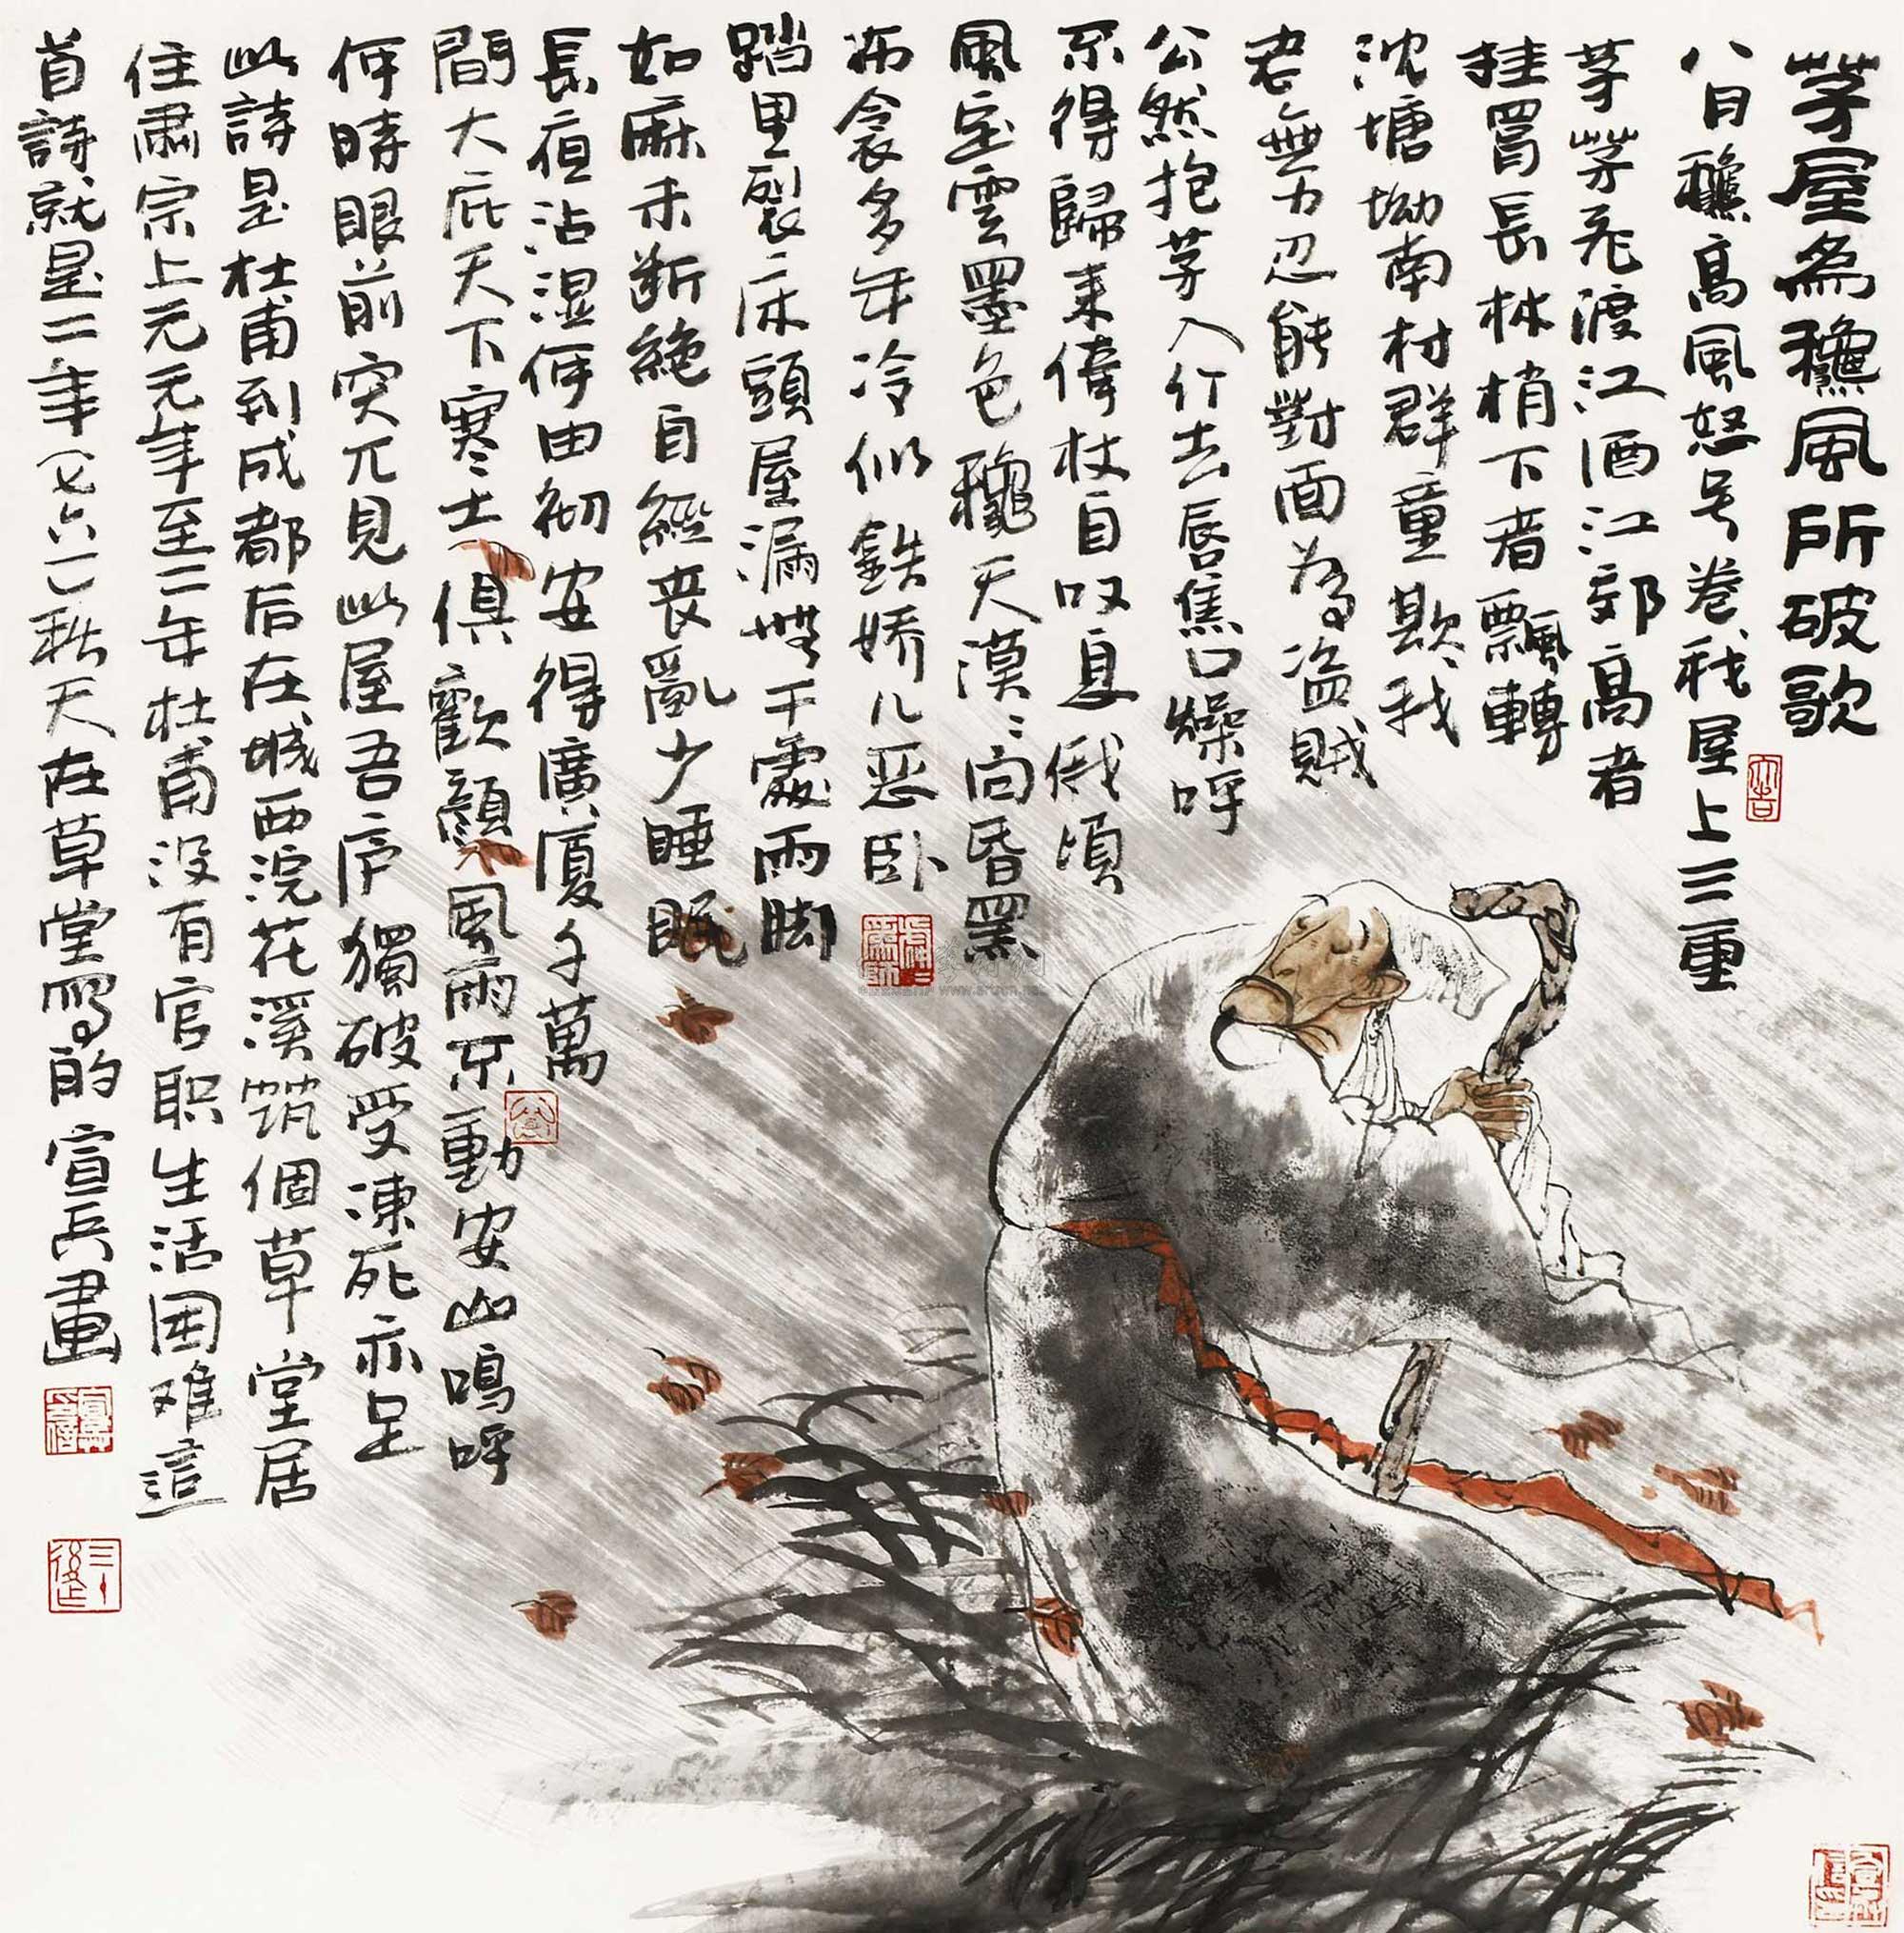 茅屋為龝風所破歌
八月龝高風怒号卷我屋上三重
茅茅飛渡江洒江郊高者
挂罥長林梢下者飄轉
沈塘坳南村群童欺我
老無力忍能對面為盗賊
公然抱茅入竹去唇焦口燥呼
不得歸来倚杖自叹息俄頃
風定雲墨色龝天漠〻向昏黑
布衾多年冷似鉄娇儿恶卧
踏里裂床頭屋漏無干處雨脚
如麻未断絶自經丧亂少睡眠
長夜沾湿何由彻安得廣厦千萬
間大庇天下寒士俱歡顔風雨不動安山鳴呼
何時眼前突兀見此屋吾庐獨破受凍死亦足
此詩是杜甫到成都后在城西浣花溪筑個草堂居
住肃宗上元元年至二年杜甫没有官职生活困难這
首詩就是二年七六一秋天在草堂寫的宣兵畫